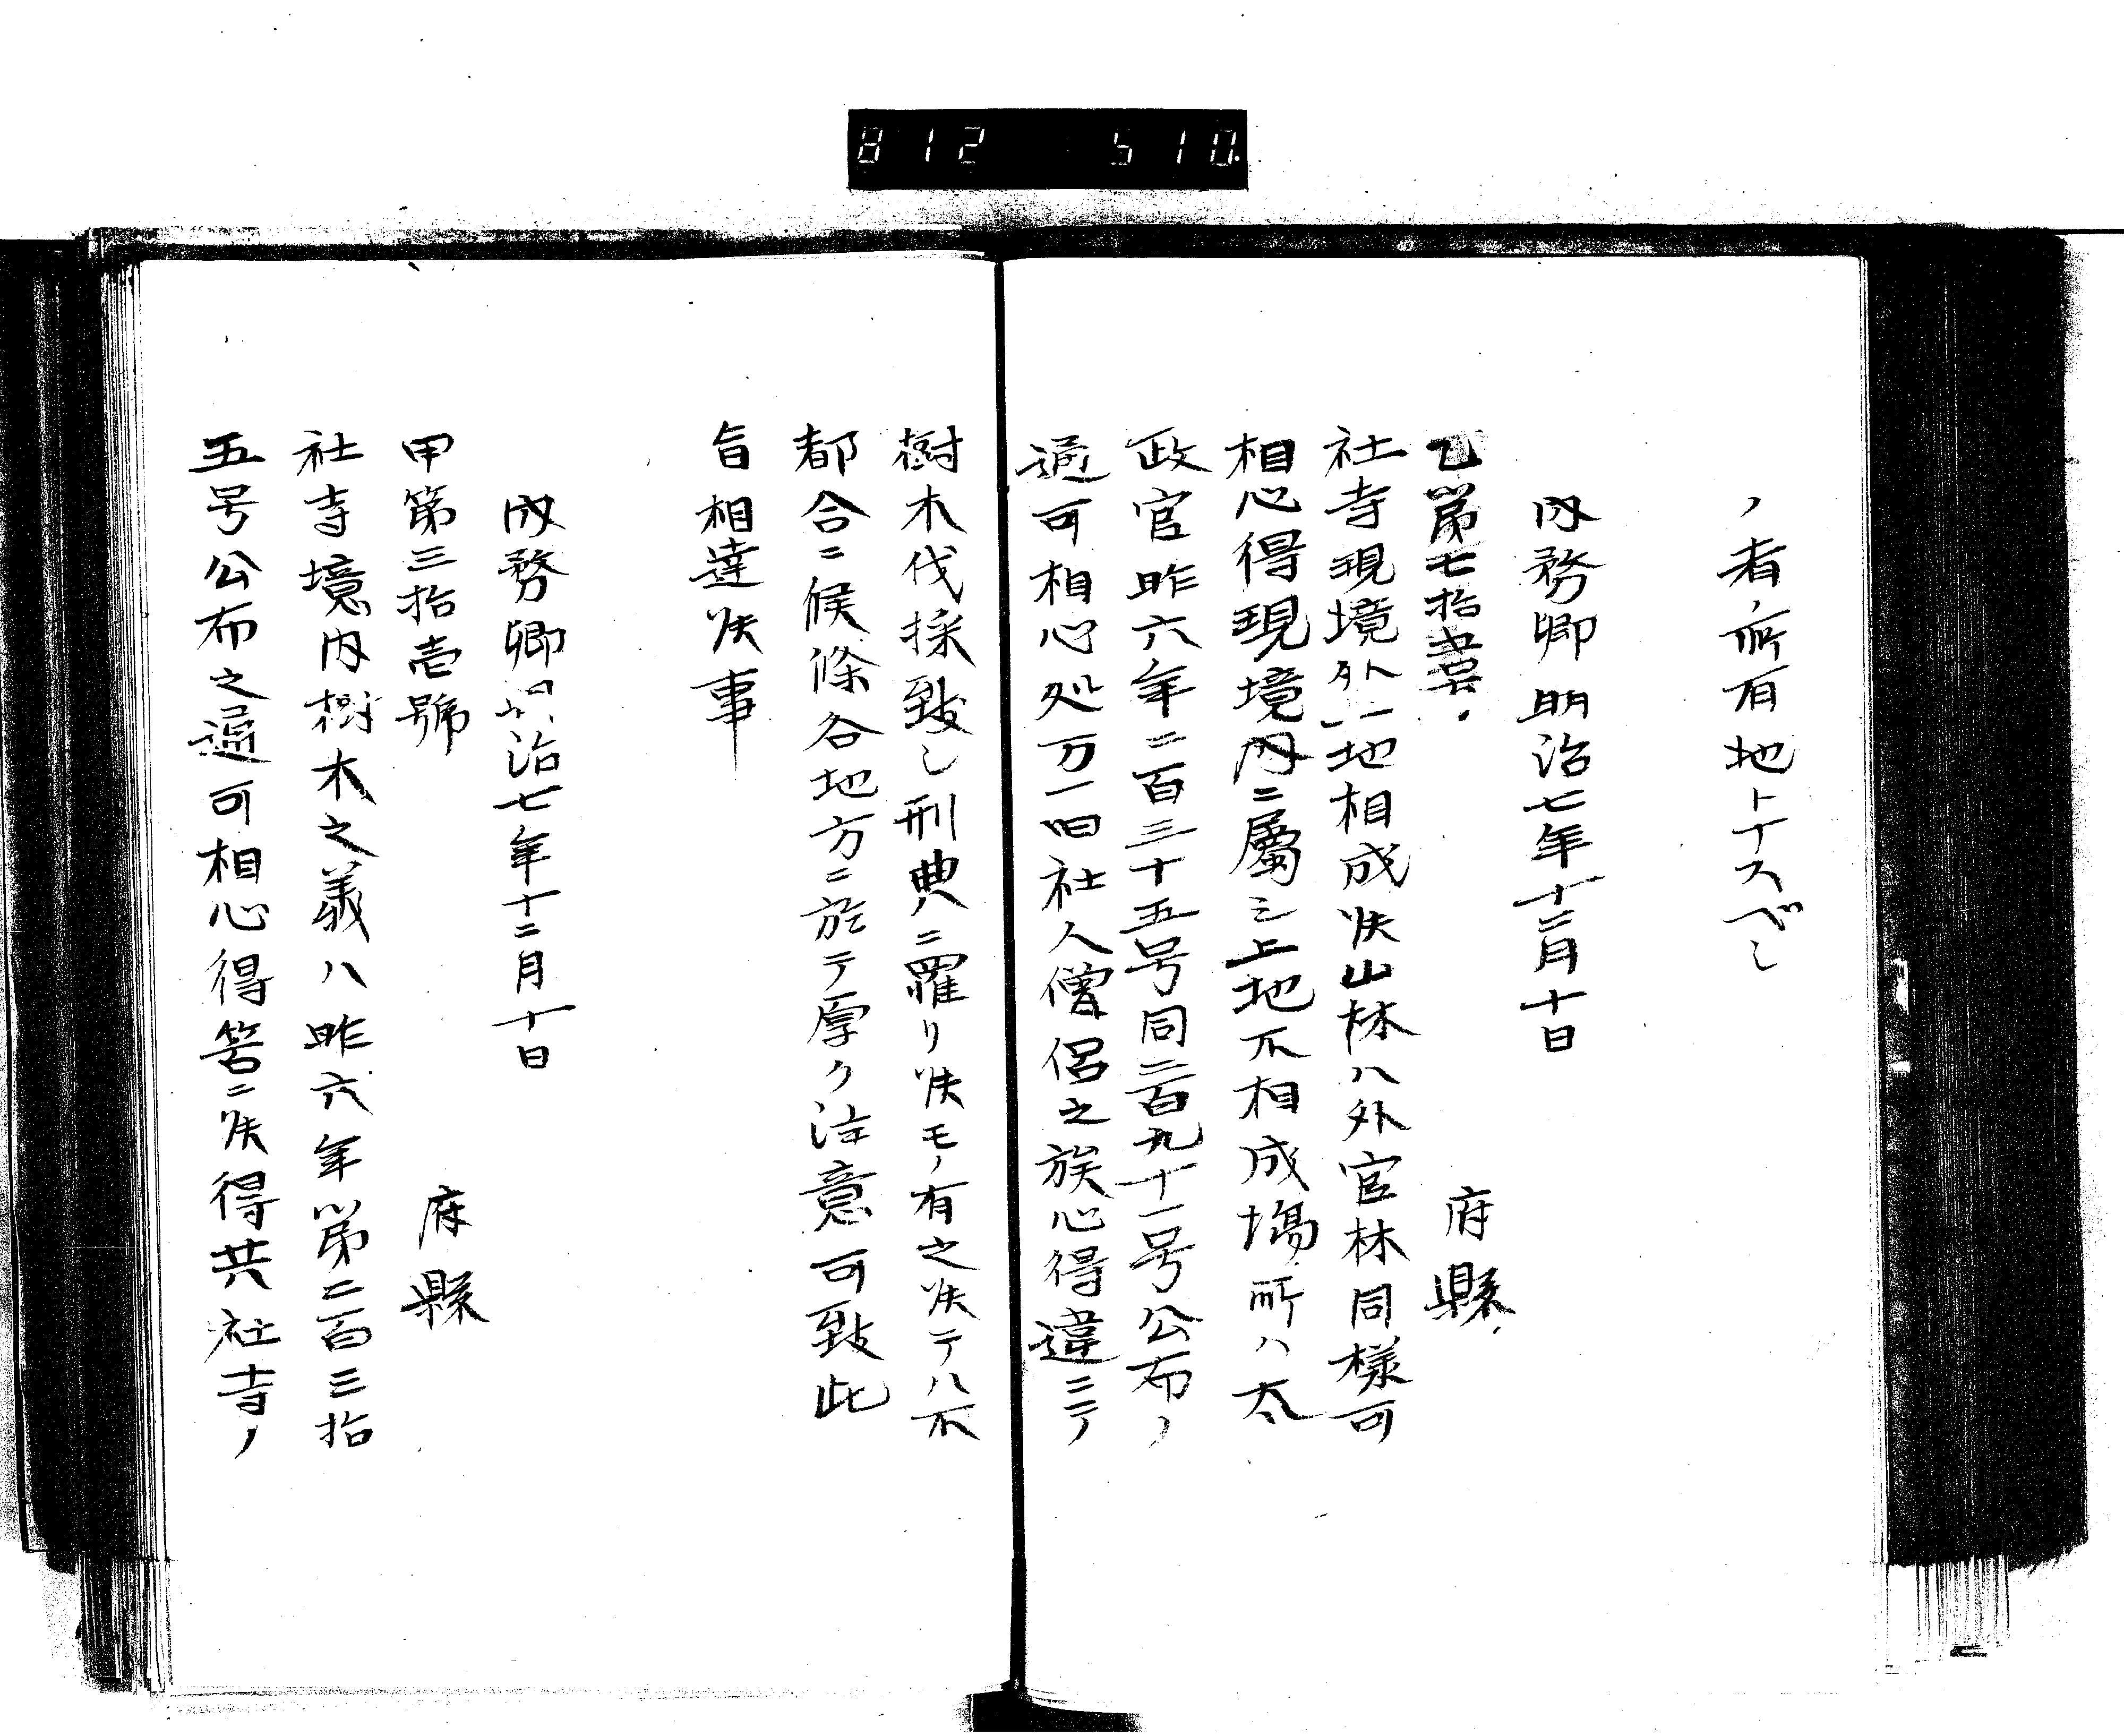 812 510.
ノ者ノ所有地トナスベシ
内務卿 明治七年十二月十日
乙第七拾五号
府縣
社寺現境外ノ地相成候山林ハ外官林同様可
相心得現境内ニ属シ上地不相成場所ハ太
政官昨六年二百三十五号同二百九十一号公布ノ
通可相心処万一旧社人僧侶之族心得違ニテ
樹木伐採致シ刑典ニ罹リ候モノ有之候テハ不
都合ニ候條各地方ニ於テ厚ク注意可致此
旨相達候事
内務卿 明治七年十二月十日
甲第三拾壱號
府縣
社寺境内樹木之義ハ昨六年第二百三拾
五号公布之通可相心得筈ニ候得共社寺ノ